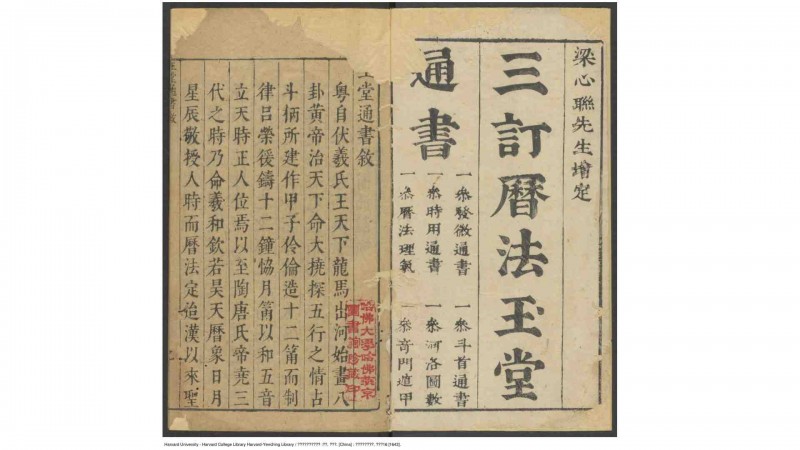 梁心聯先生增定
三訂曆法玉堂
通書
一叅發微通書
一叅斗首通書
一叅時用通書
一叅河洛圖數
一叅曆法理氣
一叅奇門遁甲
堂通書敘
粵自伏羲氏王天下龍馬出河始畫八
卦黃帝治天下命大撓探五行之情占
斗柄所建作甲子伶倫造十二筩而制
律呂榮猨鑄十二鐘恊月筩以和五音
立天時正人位焉以至陶唐氏帝堯三
代之時乃命羲和欽若昊天曆象日月
星辰敬授人時而曆法定迨漢以來聖
哈佛大學哈佛燕京
圖書館珍藏印
Harvard University - Harvard College Library Harvard-Yenching Library / ?????????? .??, ???. [China] : ????????, ???16 [1643].